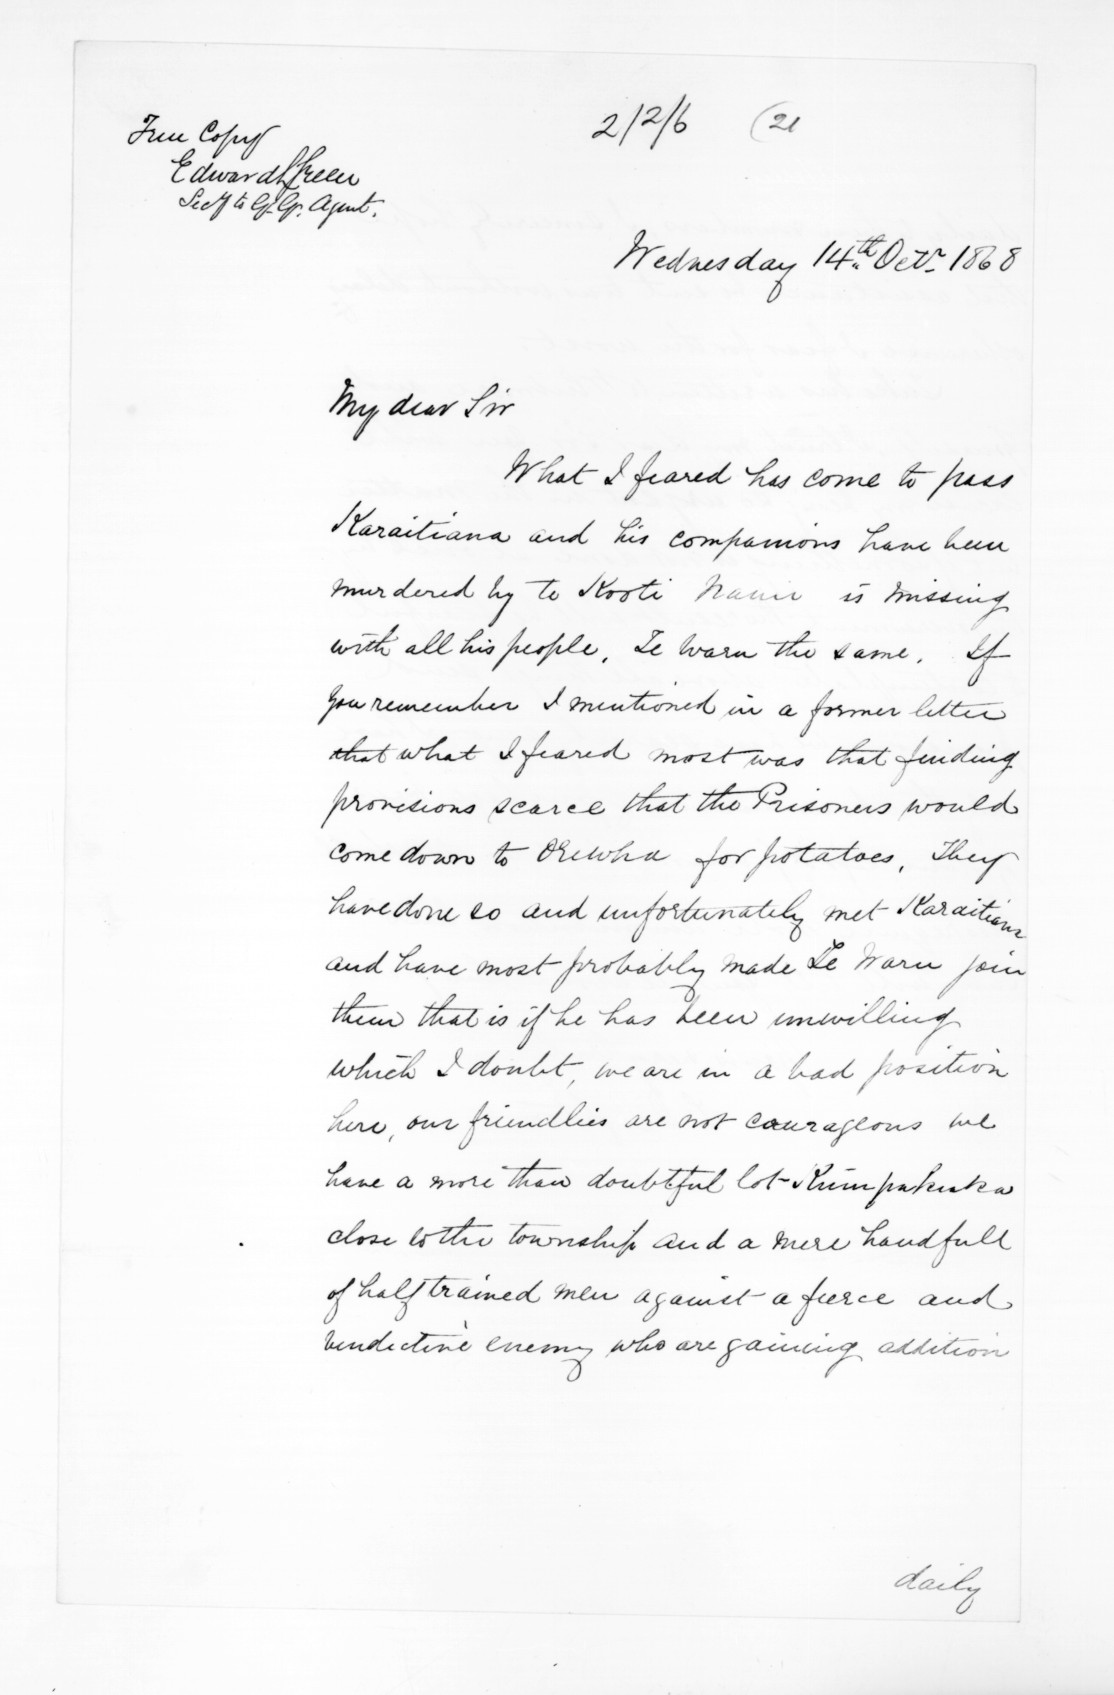 True Copy
Edward L Green
Secy to G. Gr. Agent.
2/2/6 (21
Wednesday 14th Octr. 1868
My dear Sir
What I feared has come to pass
Karaitiana and his companions have been
murdered by te Kooti is missing
with all his people, Te Waru the same. If
you remember I mentioned in a former letter
that what I feared most was that finding
provisions scarce that the Prisoners would
come down to for potatoes, They
have done so and unfortunately met Karaitiana
and have most probably made Te Waru join
them that is if he has been unwilling
which I doubt, we are in a bad position
here, our friendlies are not courageous we
have a more than doubtful lot
close to the township and a mere handfull
of half trained men against a fierce and
vindictive enemy who are gaining addition
daily